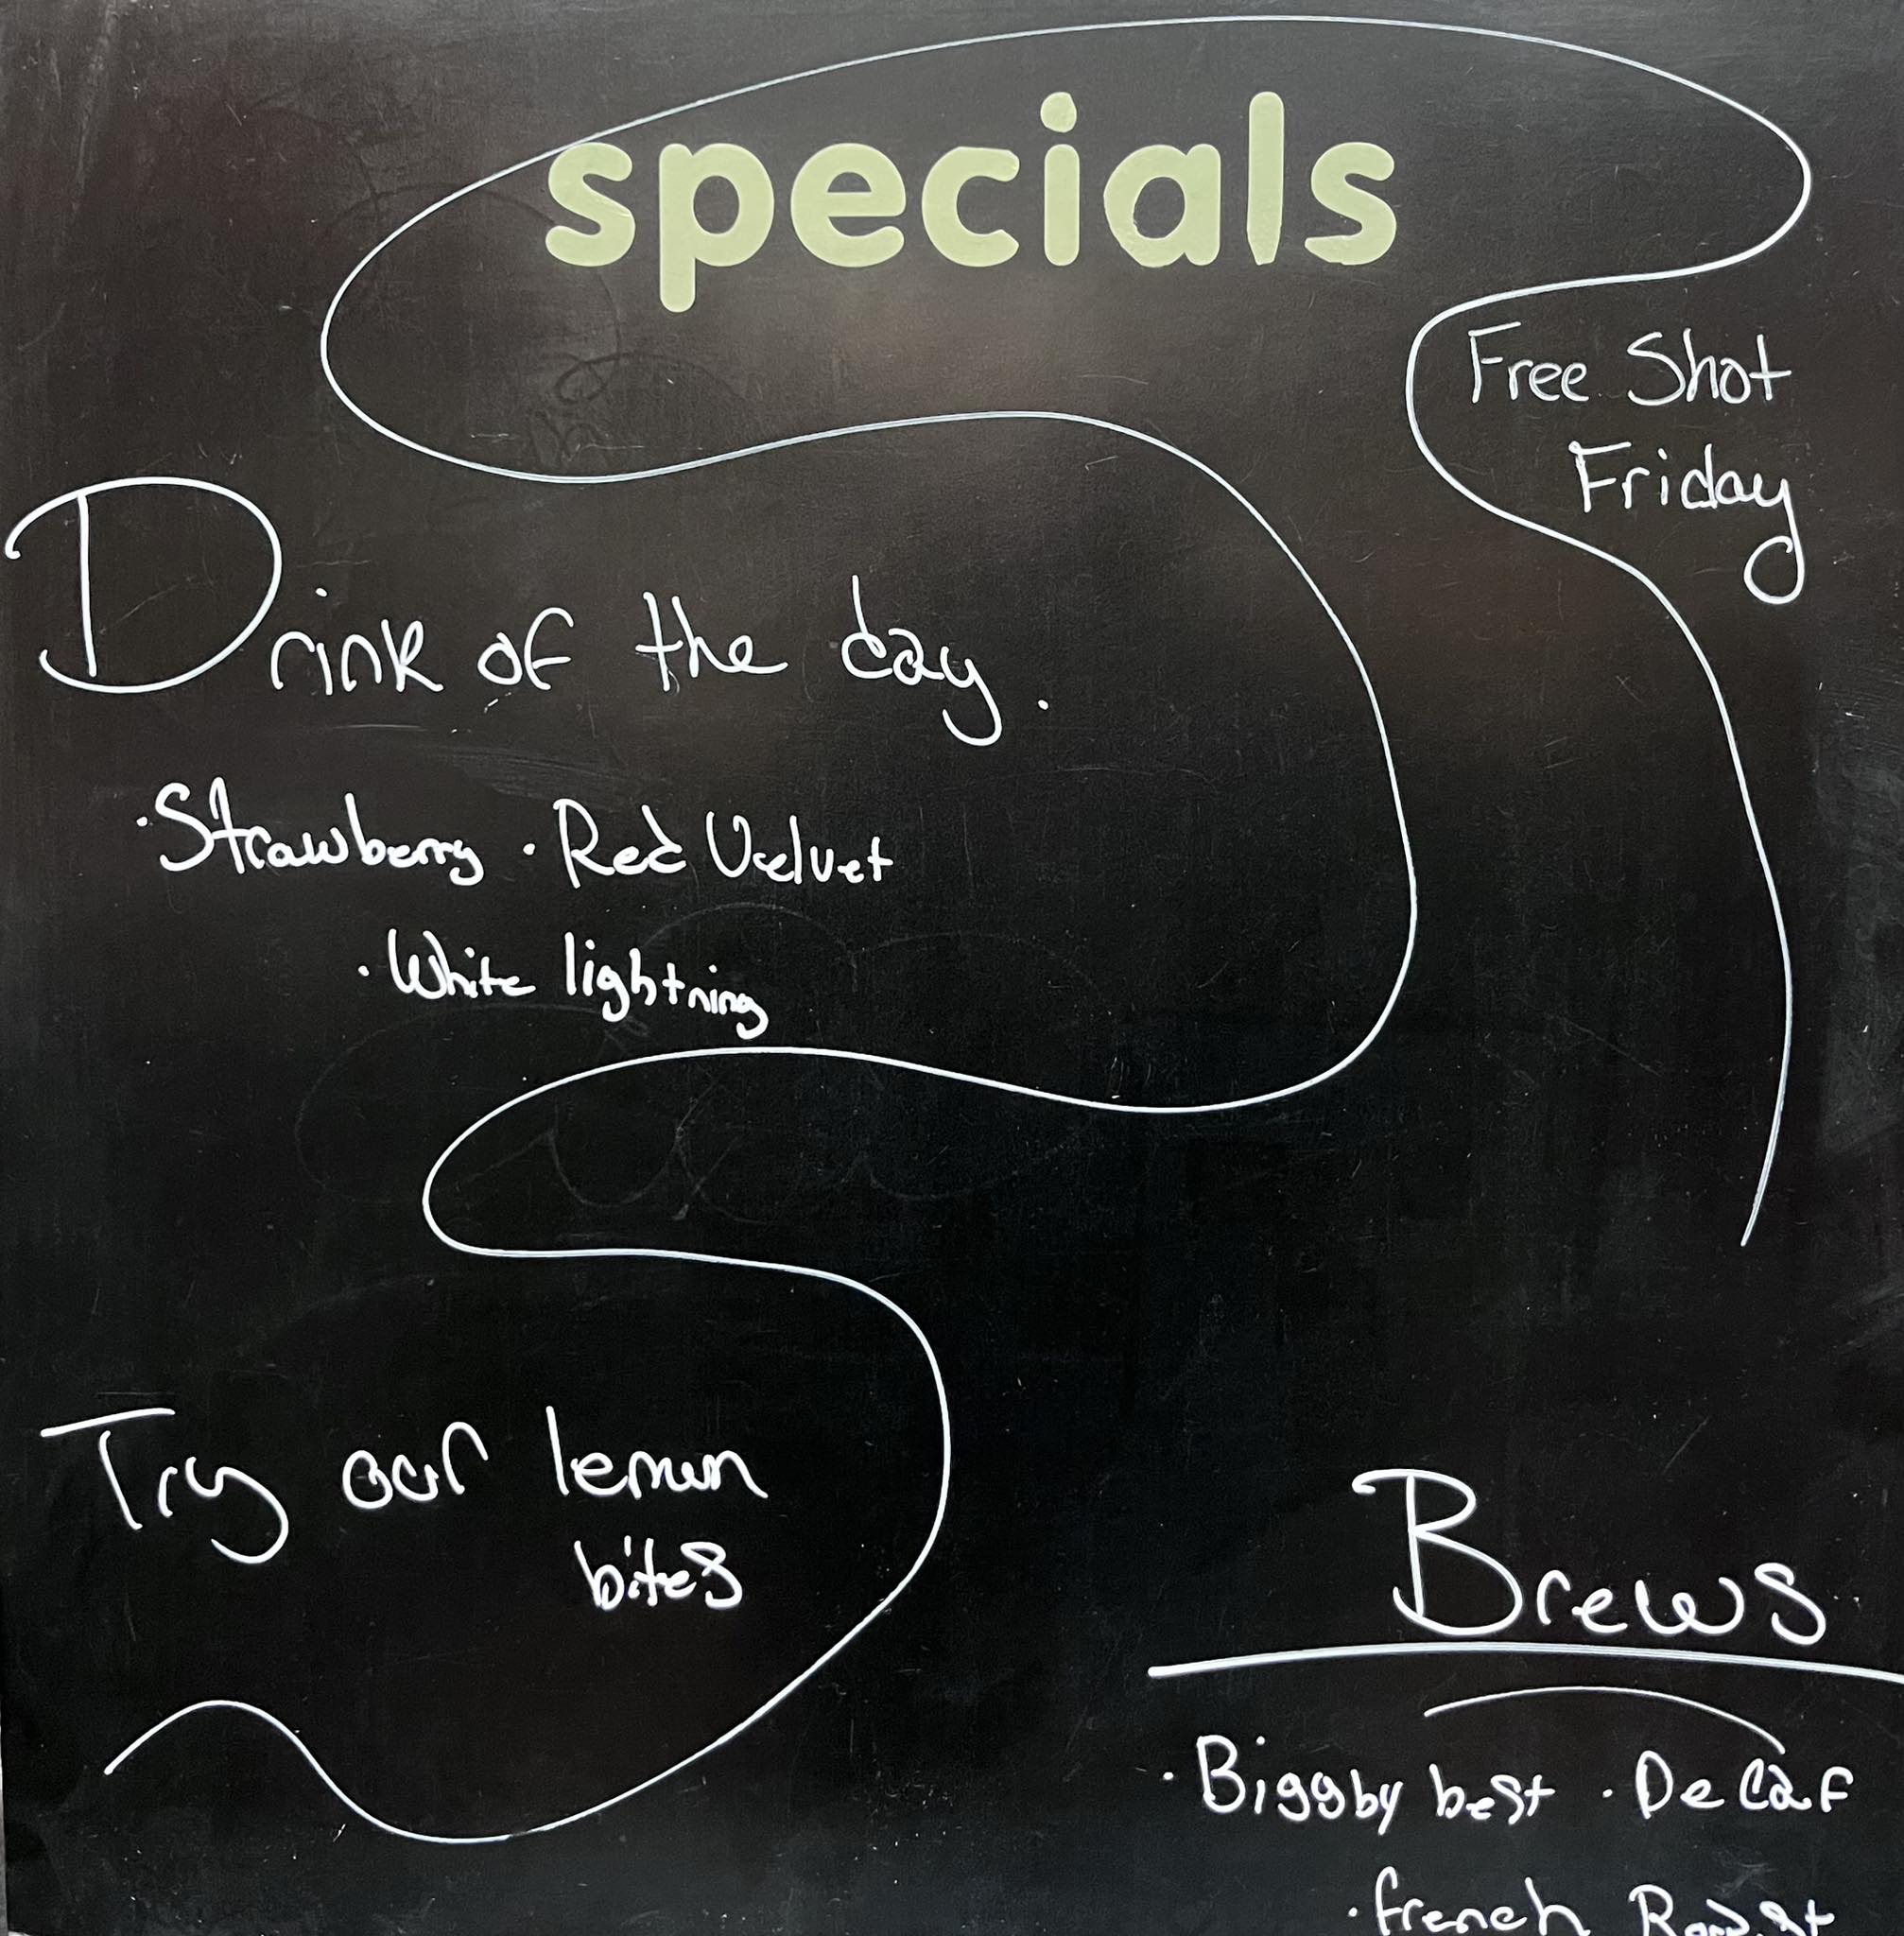 specials
Free Shot
Friday
Drink of the day.
·Strawberry · Red Velvet
· White lightning
Try our lemon
bites
Brews
· Biggby best · Decaf
· French Roast